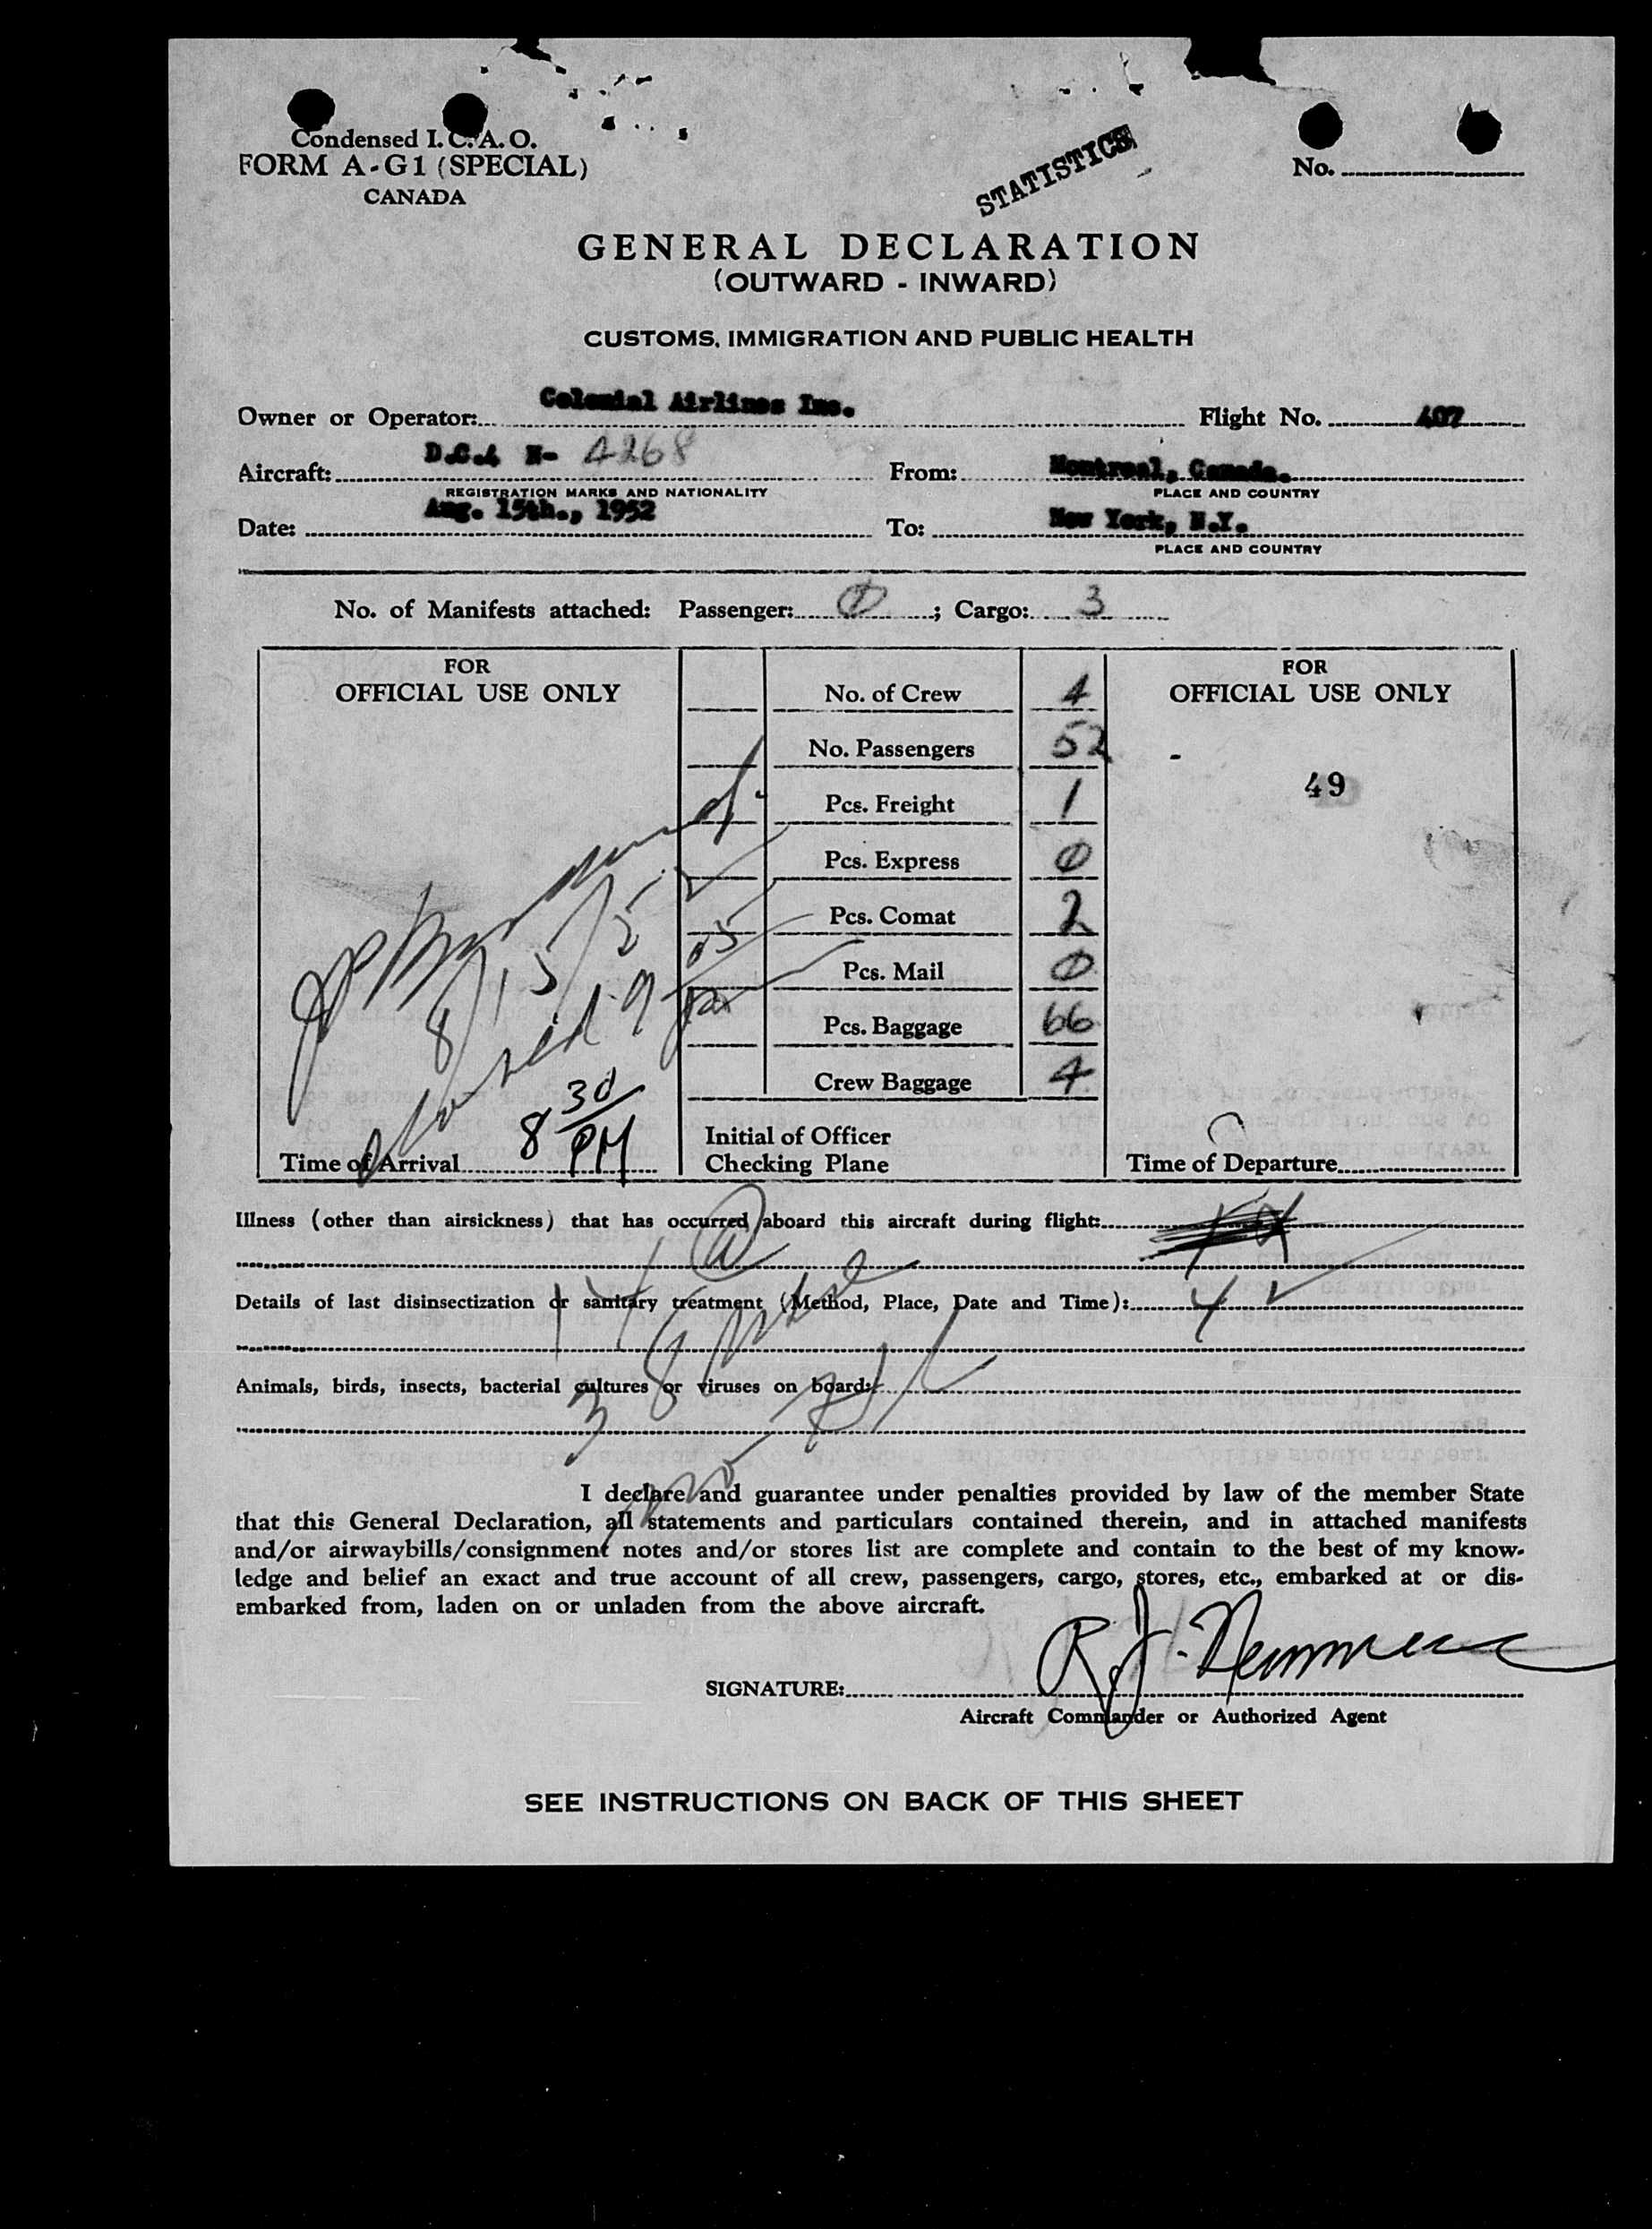 Condensed I.C.A.O.
FORM A-G1 (SPECIAL)
CANADA
STATISTICS
No.
GENERAL DECLARATION
(OUTWARD - INWARD)
CUSTOMS, IMMIGRATION AND PUBLIC HEALTH
Owner or Operator: Colonial Airlines Inc. Flight No. 407
Aircraft: D.C.4 N- 4268 From: Montreal, Canada.
REGISTRATION MARKS AND NATIONALITY PLACE AND COUNTRY
Date: Aug. 15th., 1952 To: New York, N.Y.
PLACE AND COUNTRY
No. of Manifests attached: Passenger: 0; Cargo: 3
FOR
OFFICIAL USE ONLY
8/15/52
9 05
Time of Arrival 8 30 PM
No. of Crew 4
No. Passengers 52
Pcs. Freight 1
Pcs. Express 0
Pcs. Comat 2
Pcs. Mail 0
Pcs. Baggage 66
Crew Baggage 4
Initial of Officer
Checking Plane
FOR
OFFICIAL USE ONLY
49
Time of Departure
Illness (other than airsickness) that has occurred aboard this aircraft during flight:
Details of last disinsectization or sanitary treatment (Method, Place, Date and Time):
Animals, birds, insects, bacterial cultures or viruses on board:
I declare and guarantee under penalties provided by law of the member State
that this General Declaration, all statements and particulars contained therein, and in attached manifests
and/or airwaybills/consignment notes and/or stores list are complete and contain to the best of my know-
ledge and belief an exact and true account of all crew, passengers, cargo, stores, etc., embarked at or dis-
embarked from, laden on or unladen from the above aircraft.
SIGNATURE: R.J.
Aircraft Commander or Authorized Agent
SEE INSTRUCTIONS ON BACK OF THIS SHEET